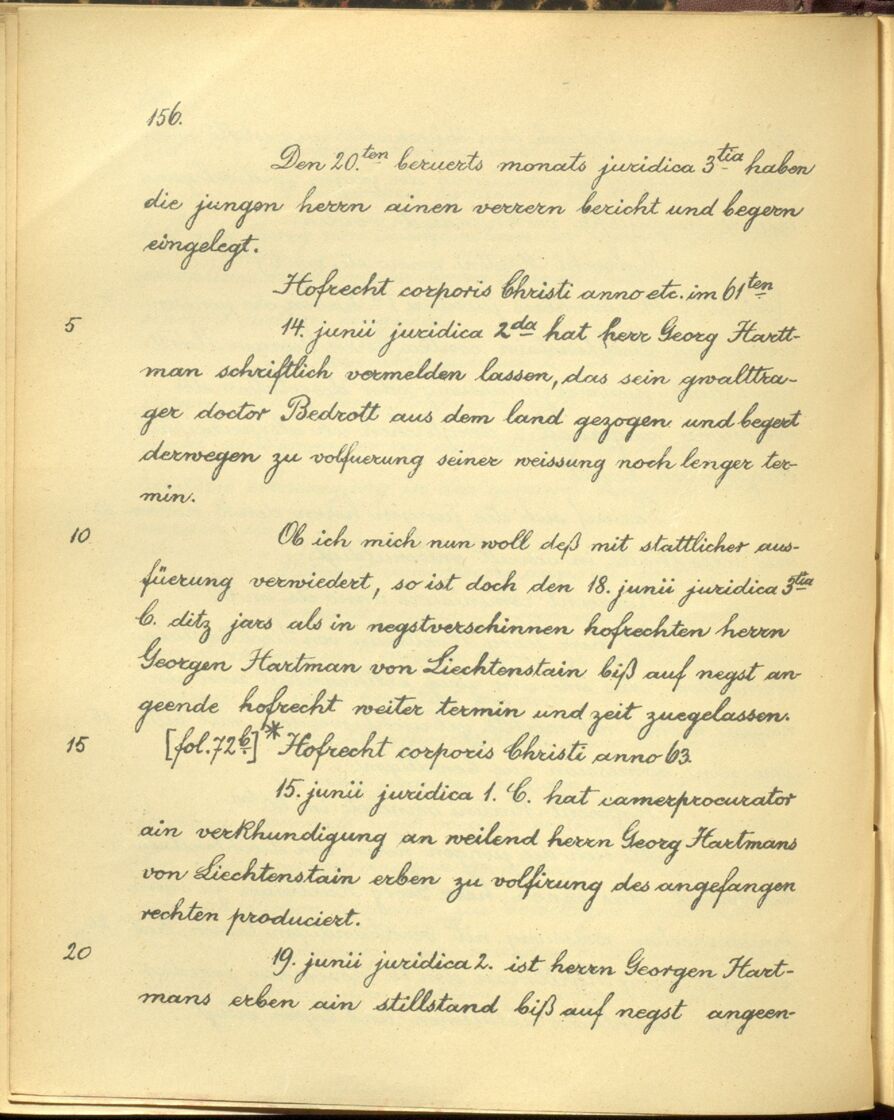 156.
Den 20.ten beruerts monats juridica 3tia haben
die jungen herrn ainen verrern bericht und begern
eingelegt.
Hofrecht corporis Christi anno etc. im 61ten
5 14. junii juridica 2da hat herr Georg Hartt-
man schriftlich vermelden lassen, das sein gwalttra-
ger doctor Bedrott aus dem land gezogen und begert
derwegen zu volfuerung seiner weissung noch lenger ter-
min.
10 Ob ich mich nun woll deß mit stattlicher aus-
füerung verwiedert, so ist doch den 18. junii juridica 3tia
C. ditz jars als in negstverschinnen hofrechten herrn
Georgen Hartman von Liechtenstain biß auf negst an-
geende hofrecht weiter termin und zeit zuegelassen.
15 [fol. 72b]* Hofrecht corporis Christi anno 63.
15. junii juridica 1. C. hat camerprocurator
ain verkhundigung an weilend herrn Georg Hartmans
von Liechtenstain erben zu volfirung des angefangen
rechten produciert.
20 19. junii juridica 2. ist herrn Georgen Hart-
mans erben ain stillstand biß auf negst angeen-